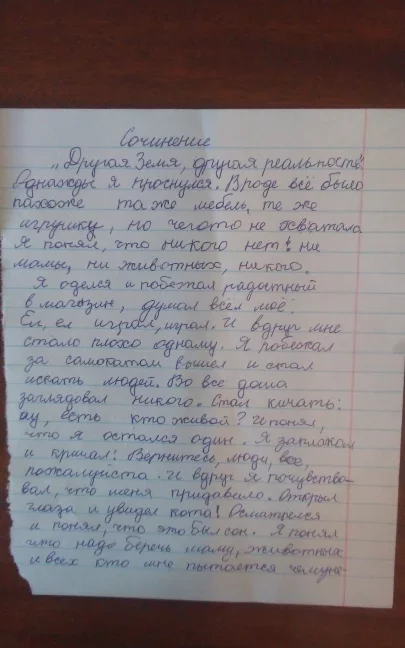 Сочинение
„Другая Земя, другая реальность"
Однажды я проснулся. Вроде всё было
похоже та же мебель, те же
игрушки, но чегото не хватало
Я понял, что никого нет! ни
мамы, ни животных, никого.
Я оделся и побежал радостный
в магазин, думал всё моё!
Ел, ел играл, играл. И вдруг мне
стало плохо одному. Я побежал
за самокатом вышел и стал
искать людей. Во все дома
заглядовал никого. Стал кичать:
ау, есть кто живой? И понял,
что я остался один. Я заплакал
и кричал: Вернитесь, люди, все,
пожалуйста. И вдруг я почувство-
вал, что меня придавило. Открыл
глаза и увидел кота! Осмотрелся
и понял, что это был сон. Я понял
что надо беречь маму, животных
и всех кто мне пытается чемуне-